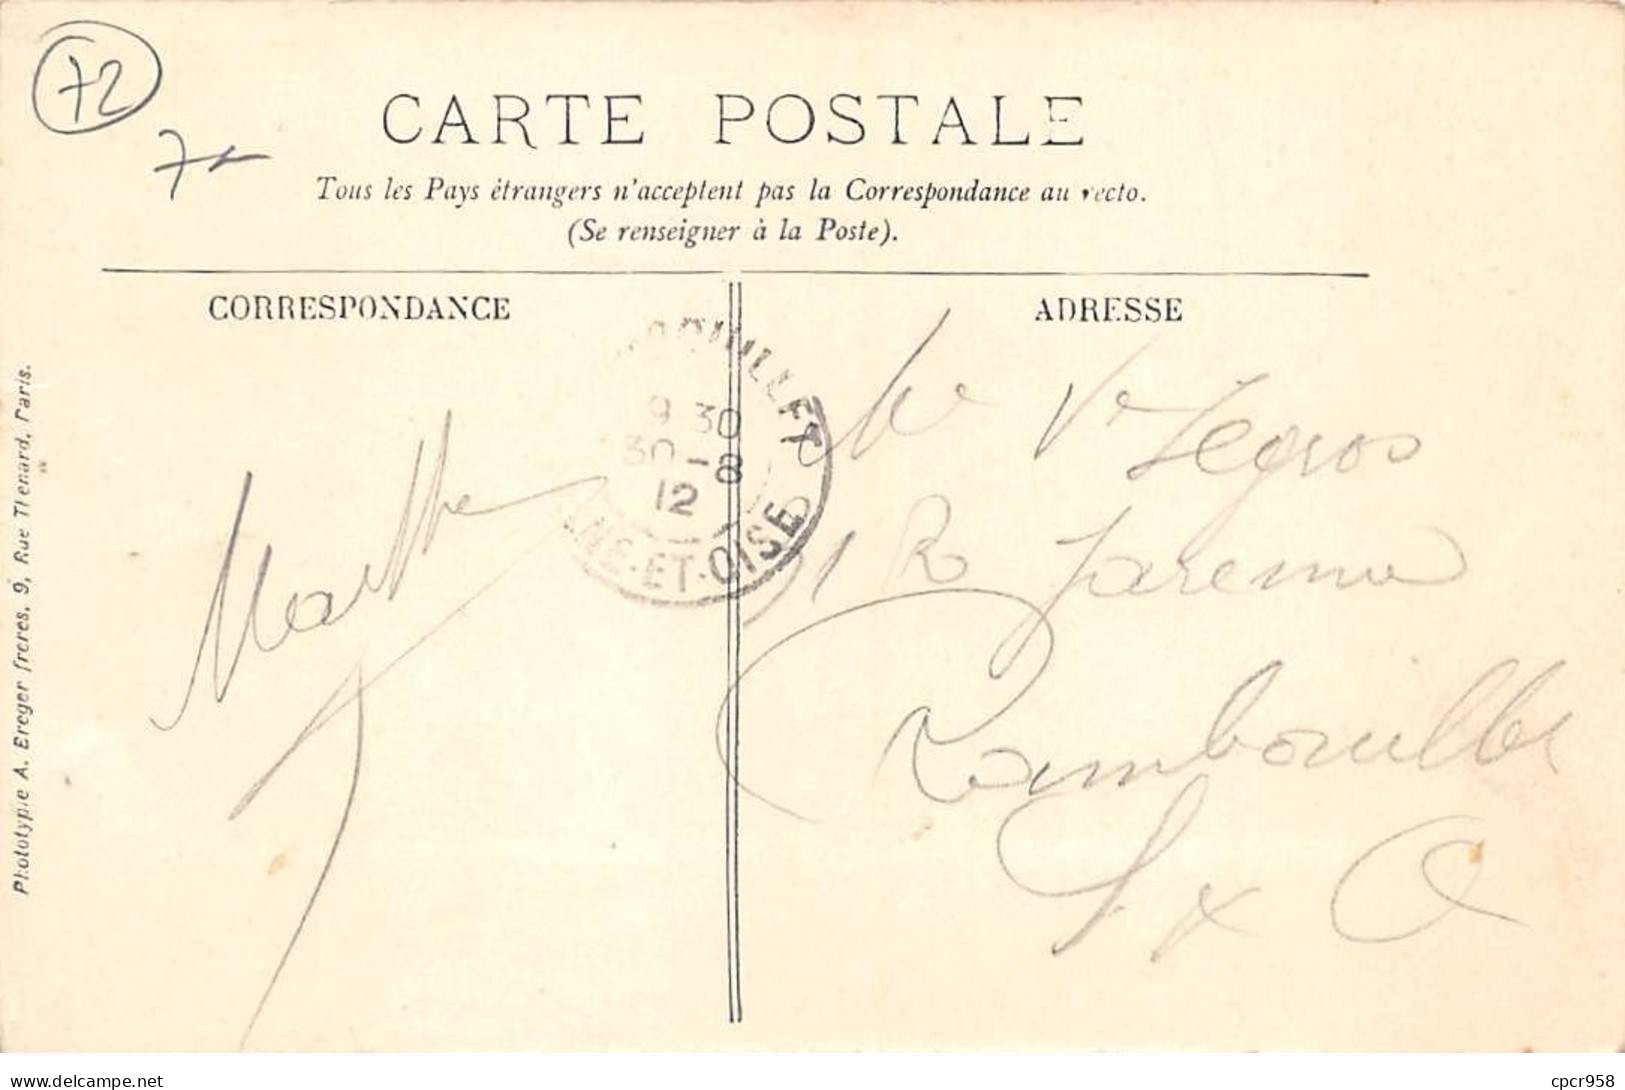 72
7
CARTE POSTALE
Tous les Pays étrangers n'acceptent pas la Correspondance au recto.
(Se renseigner à la Poste).
CORRESPONDANCE
ADRESSE
Marthe
9 30
30 - 8
12
ET-OISE
Me Ve Legros
1 R
Rambouillet
S x O
Phototypie A. Breger frères, 9, Rue Thenard, Paris.
delcampe.net
cpcr958